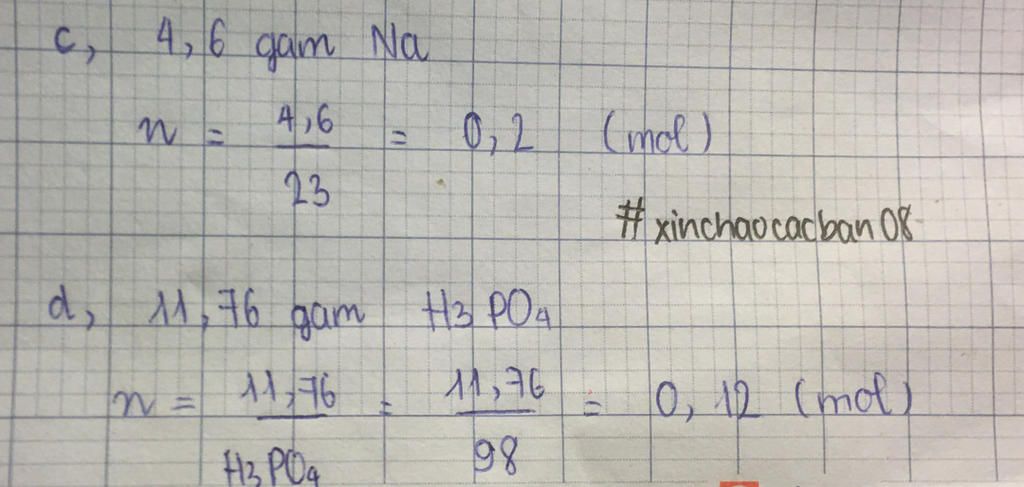 c, 4,6 gam Na
n = 4,6 / 23 = 0,2 (mol)
#xinchaocacban08
d, 11,76 gam H3PO4
n = 11,76 / H3PO4 = 11,76 / 98 = 0,12 (mol)